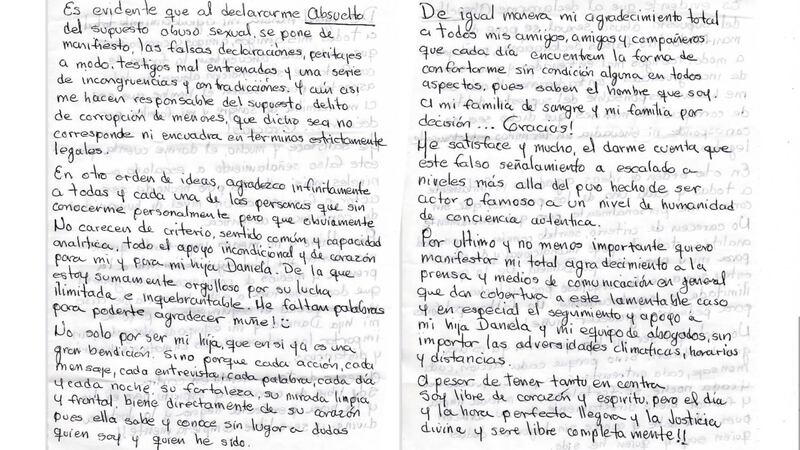 Es evidente que al declararme Absuelto
del supuesto abuso sexual, se pone de
manifiesto, las falsas declaraciones, peritajes
a modo, testigos mal entrenados y una serie
de incongruencias y contradicciones. Y aún así
me hacen responsable del supuesto delito
de corrupción de menores, que dicho sea no
corresponde ni encuadra en términos estrictamente
legales.
En otro orden de ideas, agradezco infinitamente
a todas y cada una de las personas que sin
conocerme personalmente pero que obviamente
No carecen de criterio, sentido común y capacidad
analítica, todo el apoyo incondicional y de corazón
para mi y para mi hija Daniela. De la que
estoy sumamente orgulloso por su lucha
ilimitada e inquebrantable. Me faltan palabras
para poderte agradecer muñe!
No solo por ser mi hija, que en sí ya es una
gran bendición. Sino porque cada acción, cada
mensaje, cada entrevista, cada palabra, cada día
y cada noche, su fortaleza, su mirada limpia
y frontal, biene directamente de su corazón
pues ella sabe y conoce sin lugar a dudas
quien soy y quien he sido.
De igual manera mi agradecimiento total
a todos mis amigos, amigas y compañeros
que cada día encuentran la forma de
confortarme sin condición alguna en todos
aspectos, pues saben el hombre que soy.
A mi familia de sangre y mi familia por
decisión... Gracias!
Me satisface y mucho, el darme cuenta que
este falso señalamiento a escalado a
niveles más alla del puro hecho de ser
actor o famoso, a un nivel de humanidad
de conciencia autentica.
Por ultimo y no menos importante quiero
manifestar mi total agradecimiento a la
prensa y medios de comunicación en general
que dan cobertura a este lamentable caso
y en especial el seguimiento y apoyo a
mi hija Daniela y mi equipo de abogados, sin
importar las adversidades climaticas, horarios
y distancias.
A pesar de tener tanto en contra
Soy libre de corazón y espiritu, pero el día
y la hora perfecta llegara y la Josticia
divina y sere libre completamente!!